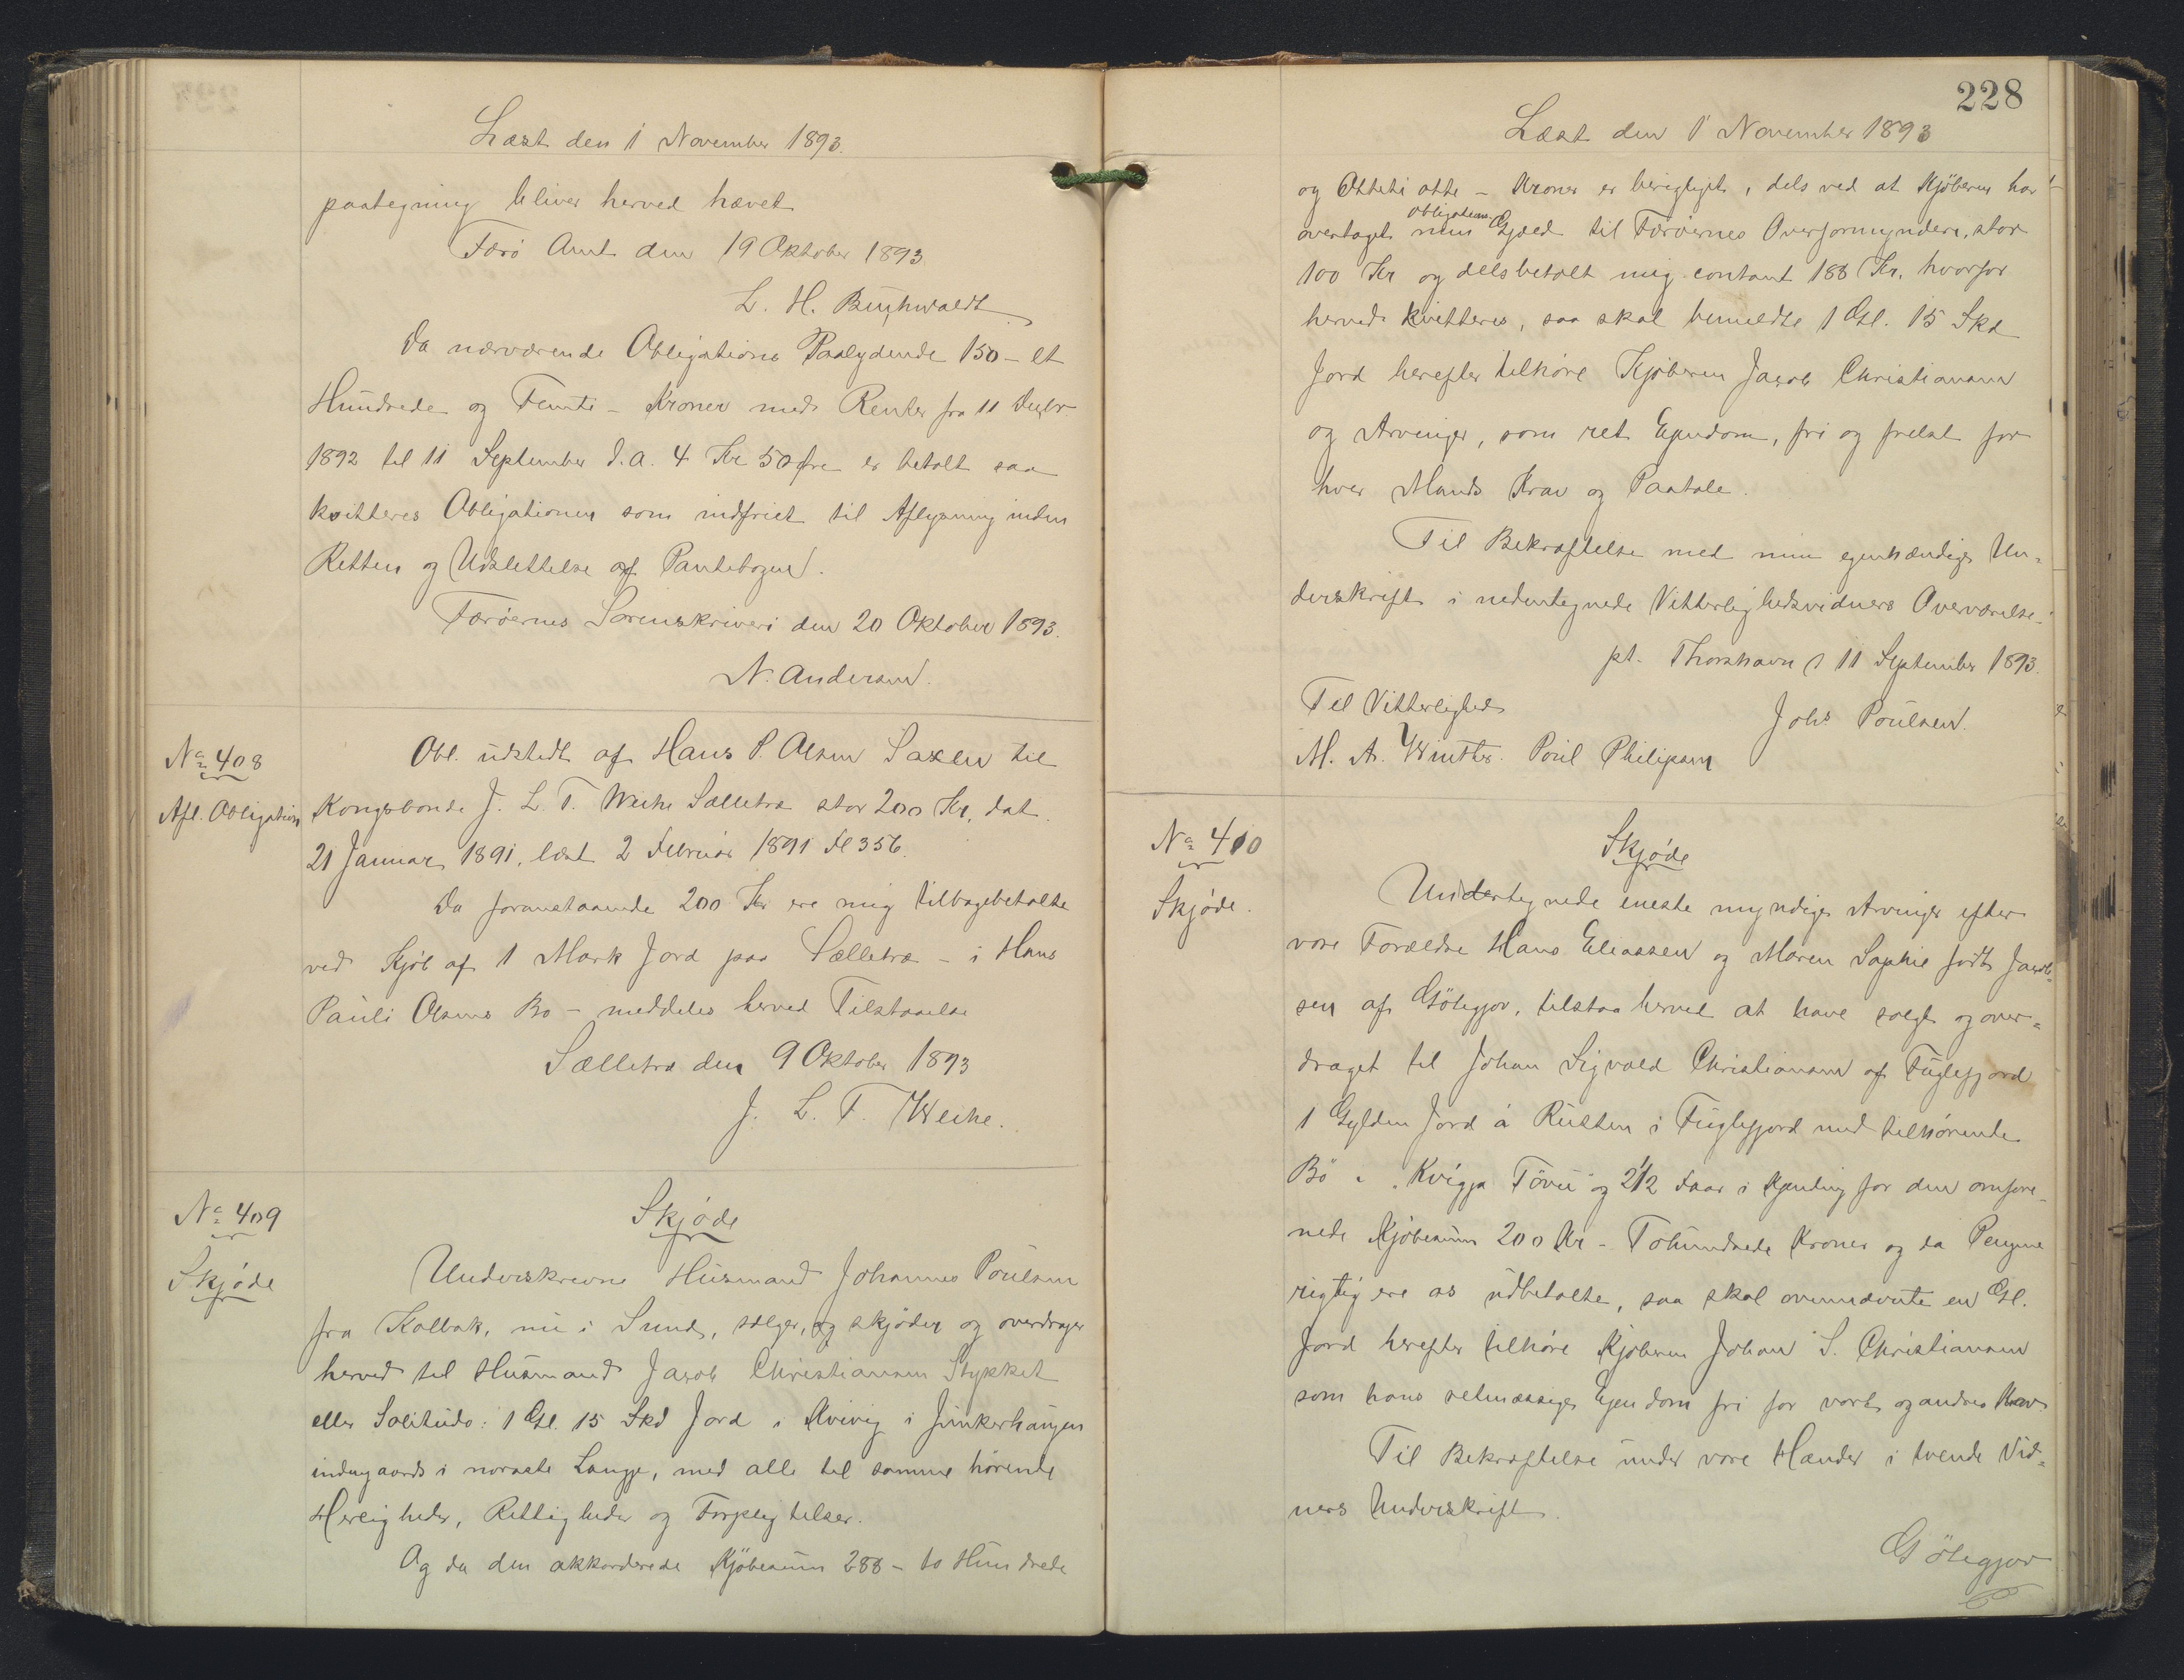 Læst den 1 November 1893.
paategning bliver herved hævet
Færö Amt den 19 Oktober 1893
L. H. Buchwaldt
Da nærværende Obligations Paalydende 150 – et
Hundrede og Femti – Kroner med Renter fra 11 Decbr.
1892 til 11 September d.A. 4 Kr 50 Øre er betalt saa
kvitteres Obligationen som indfriet til Aflysning inden
Retten og Udslettelse af Pantebogen.
Færöernes Sorenskriveri den 20 Oktober 1893.
N. Andersen.
No 408
Afl. Obligation
Obl. udstedt af Hans P. Olsen Saxen til
Kongsbonde J. L. T. Weihe Sælletræ stor 200 Kr, dat.
21 Januar 1891, læst 2 Februar 1891 Fl 356.
Da foranstaaende 200 Kr ere mig tilbagebetalte
ved Kjöb af 1 Mark Jord paa Sælletræ – i Hans
Pauli Olsens Bo – meddeles herved Tilstaaelse
Sælletræ den 9 Oktober 1893
J. L. T. Weihe.
No 409
Skjøde
Skjøde
Underskrevne Husmand Johannes Poulsen
fra Kolbak, nu i Sund, sælger, og skjøder og overdrager
herved til Husmand Jacob Christiansen Stykket
eller Solitudo: 1 Gl. 15 Skd Jord i Kvivig i Junkerhaugen
indengaards i noraste Lange, med alle til samme hørende
Herligheder, Rettigheder og Forpligtelser.
Og da den akkorderede Kjöbesum 288 – to Hundrede
228
Læst den 1 November 1893
og Otteti otte – Kroner er berigtiget, dels ved at Kjöberen har
overtaget min Obligations Gjæld til Færöernes Overformynderi, stor
100 Kr og dels betalt mig contant 188 Kr. hvorfor
herved kvitteres, saa skal bemeldte 1 Gl. 15 Skd
Jord herefter tilhöre Kjöberen Jacob Christiansen
og Arvinger, som ret Ejendom, fri og frelst for
hver Mands Krav og Paatale.
Til Bekræftelse med min egenhændige Un-
derskrift i nedentegnede Vitterlighedsvidners Overværelse.
pt. Thorshavn d 11 September 1893.
Til Vitterlighed
Johs Poulsen.
M. A. Winther. Poul Philipsen
No 410
Skjöde.
Skjøde
Undertegnede eneste myndige Arvinger efter
vore Forældre Hans Eliassen og Maren Sophie født Jacob-
sen af Götegjov, tilstaa herved at have solgt og over-
draget til Johan Sigvald Christiansen af Fuglefjord
1 Gylden Jord á Rusten i Fuglefjord med tilhörende
Bö i "Kvigja Tövu" og 2 1/2 Faar i Kjending for den omfore-
nede Kjöbesum 200 Kr – Tohundrede Kroner og da Pengene
rigtig ere os udbetalte, saa skal ovennævnte en Gl.
Jord herefter tilhöre Kjöberen Johan S. Christiansen
som hans retmæssige Ejendom fri for vort og andres Krav.
Til Bekræftelse under vore Hænder i tvende Vid-
ners Underskrift.
Götegjov